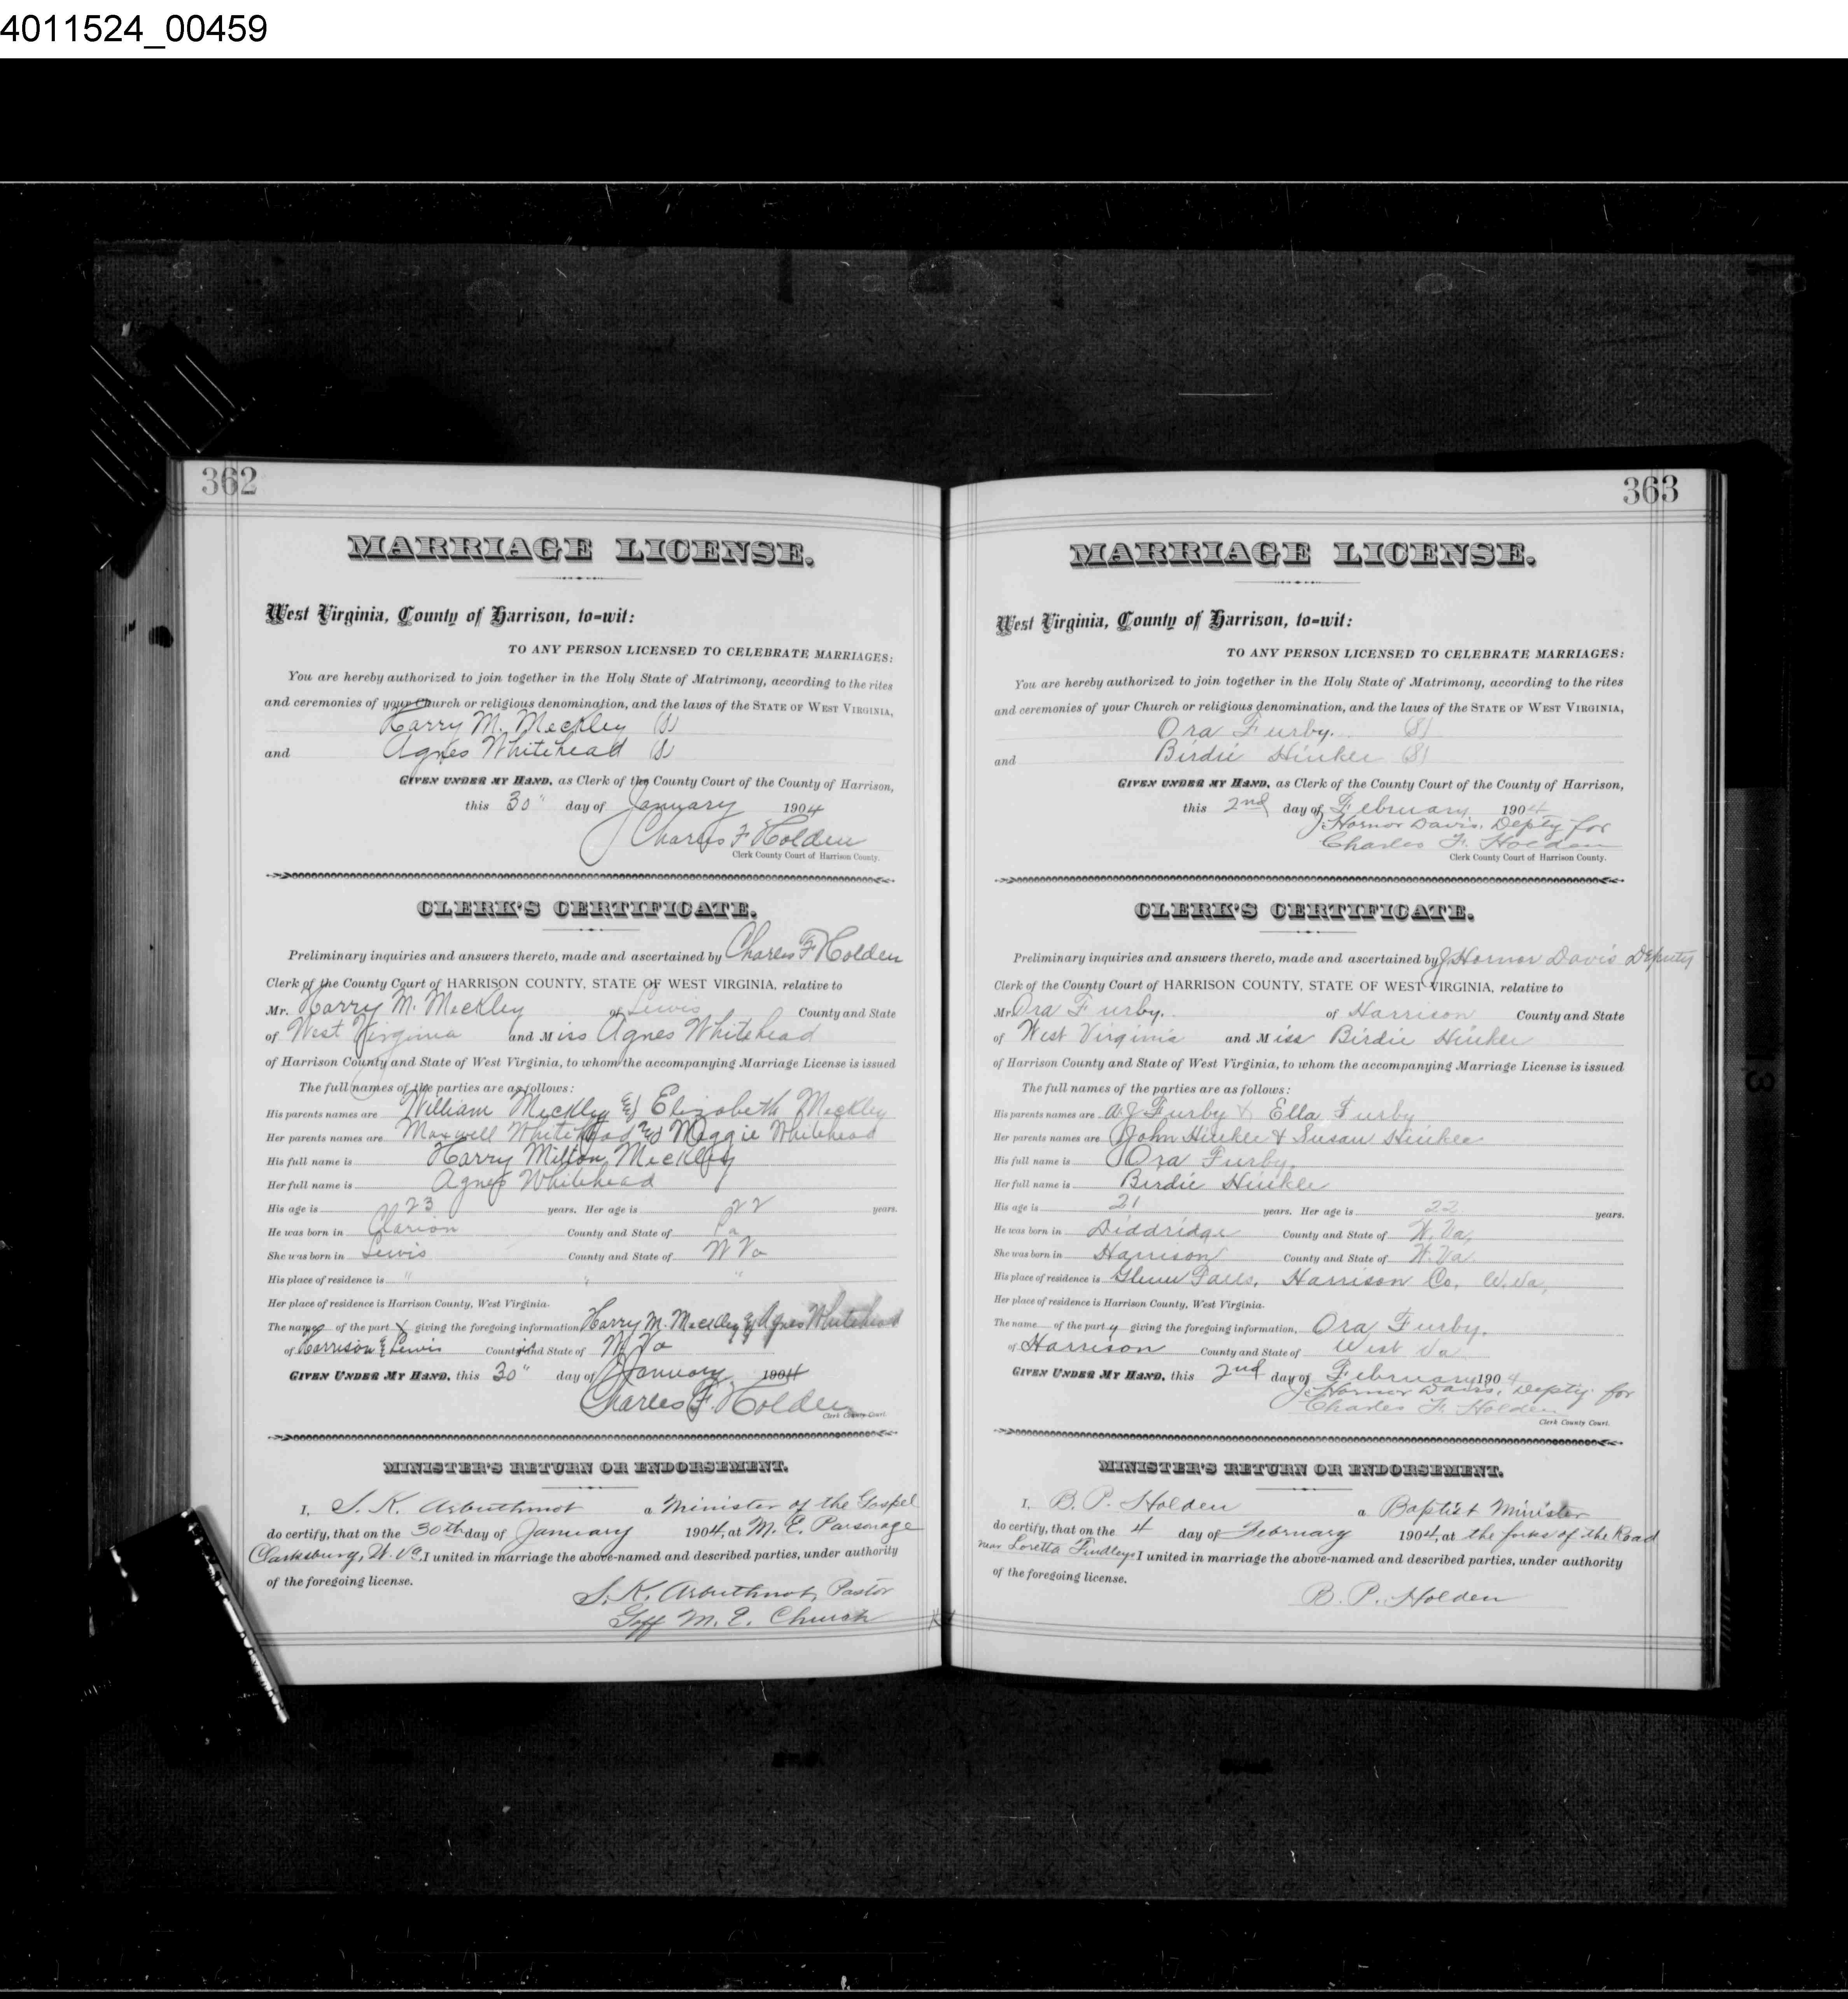 4011524_00459
362
MARRIAGE LICENSE.
West Virginia, County of Harrison, to-wit:
TO ANY PERSON LICENSED TO CELEBRATE MARRIAGES:
You are hereby authorized to join together in the Holy State of Matrimony, according to the rites
and ceremonies of your Church or religious denomination, and the laws of the STATE OF WEST VIRGINIA,
Harry M. Meckley (S)
and Agnes Whitehead (S)
GIVEN UNDER MY HAND, as Clerk of the County Court of the County of Harrison,
this 30" day of January 1904
Charles F Holden
Clerk County Court of Harrison County.
CLERK'S CERTIFICATE.
Preliminary inquiries and answers thereto, made and ascertained by Charles F Holden
Clerk of the County Court of HARRISON COUNTY, STATE OF WEST VIRGINIA, relative to
Mr. Harry M. Meckley of Lewis County and State
of West Virginia and Miss Agnes Whitehead
of Harrison County and State of West Virginia, to whom the accompanying Marriage License is issued
The full names of the parties are as follows:
His parents names are William Meckley & Elizabeth Meckley
Her parents names are Maxwell Whitehead & Maggie Whitehead
His full name is Harry Milton Meckley
Her full name is Agnes Whitehead
His age is 23 years. Her age is 22 years.
He was born in Clarion County and State of Pa
She was born in Lewis County and State of W Va
His place of residence is " " "
Her place of residence is Harrison County, West Virginia.
The names of the part giving the foregoing information Harry M. Meckley & Agnes Whitehead
of Harrison & Lewis County and State of W Va
GIVEN UNDER MY HAND, this 30" day of January 1904
Charles F. Holden
Clerk County Court.
MINISTER'S RETURN OR ENDORSEMENT.
I, S. K. Arbuthnot a Minister of the Gospel
do certify, that on the 30th day of January 1904, at M. E. Parsonage
Clarksburg, W. Va. I united in marriage the above-named and described parties, under authority
of the foregoing license.
S. K. Arbuthnot, Pastor
Goff M. E. Church
363
MARRIAGE LICENSE.
West Virginia, County of Harrison, to-wit:
TO ANY PERSON LICENSED TO CELEBRATE MARRIAGES:
You are hereby authorized to join together in the Holy State of Matrimony, according to the rites
and ceremonies of your Church or religious denomination, and the laws of the STATE OF WEST VIRGINIA,
Ora Furby. (S)
and Birdie Hinkle (S)
GIVEN UNDER MY HAND, as Clerk of the County Court of the County of Harrison,
this 2nd day of February 1904
J. Hornor Davis, Depty for
Charles F. Holden
Clerk County Court of Harrison County.
CLERK'S CERTIFICATE.
Preliminary inquiries and answers thereto, made and ascertained by J. Hornor Davis Deputy
Clerk of the County Court of HARRISON COUNTY, STATE OF WEST VIRGINIA, relative to
Mr. Ora Furby. of Harrison County and State
of West Virginia and Miss Birdie Hinkle
of Harrison County and State of West Virginia, to whom the accompanying Marriage License is issued
The full names of the parties are as follows:
His parents names are A J Furby & Ella Furby
Her parents names are John Hinkle & Susan Hinkle
His full name is Ora Furby.
Her full name is Birdie Hinkle
His age is 21 years. Her age is 22 years.
He was born in Diddridge County and State of W. Va,
She was born in Harrison County and State of W. Va.
His place of residence is Glenn Falls, Harrison Co, W. Va,
Her place of residence is Harrison County, West Virginia.
The name of the party giving the foregoing information, Ora Furby.
of Harrison County and State of West Va
GIVEN UNDER MY HAND, this 2nd day of February 1904
J. Hornor Davis, Depty for
Charles F. Holden
Clerk County Court.
MINISTER'S RETURN OR ENDORSEMENT.
I, B. P. Holden a Baptist Minister
do certify, that on the 4 day of February 1904, at the forks of the Road
near Loretta Findleys I united in marriage the above-named and described parties, under authority
of the foregoing license.
B. P. Holden